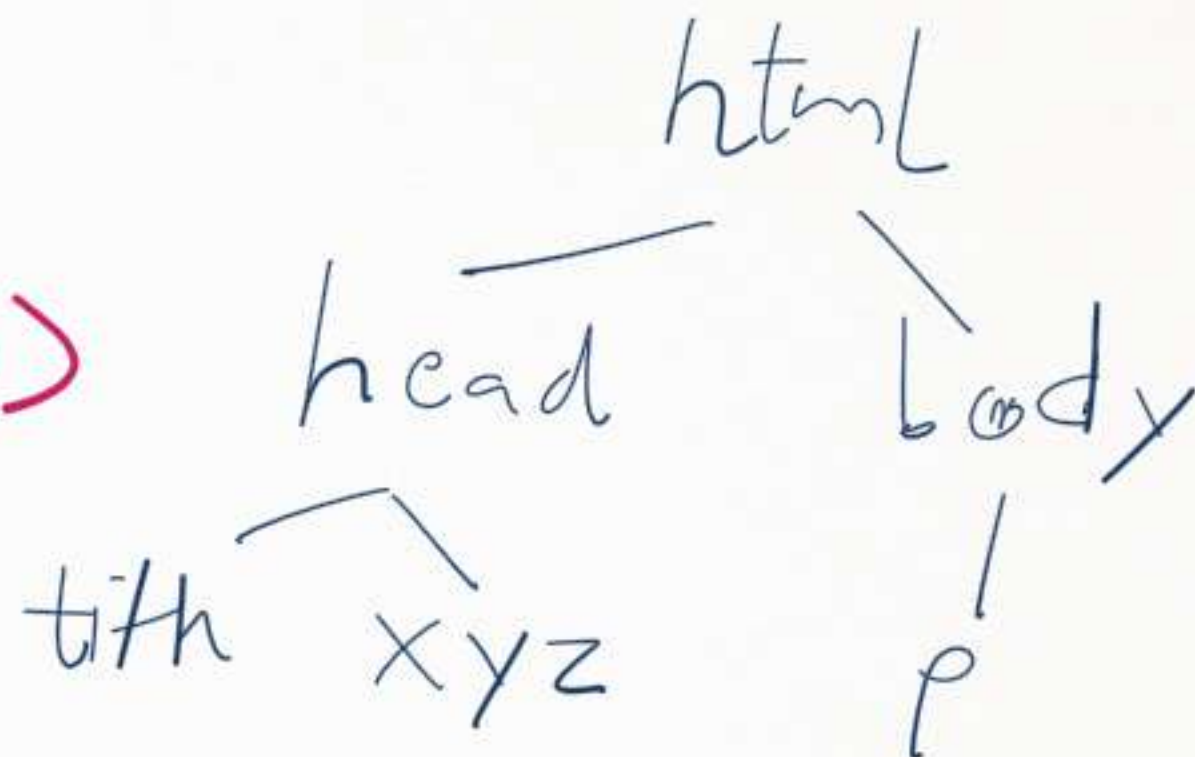 html
head body
tith xyz p